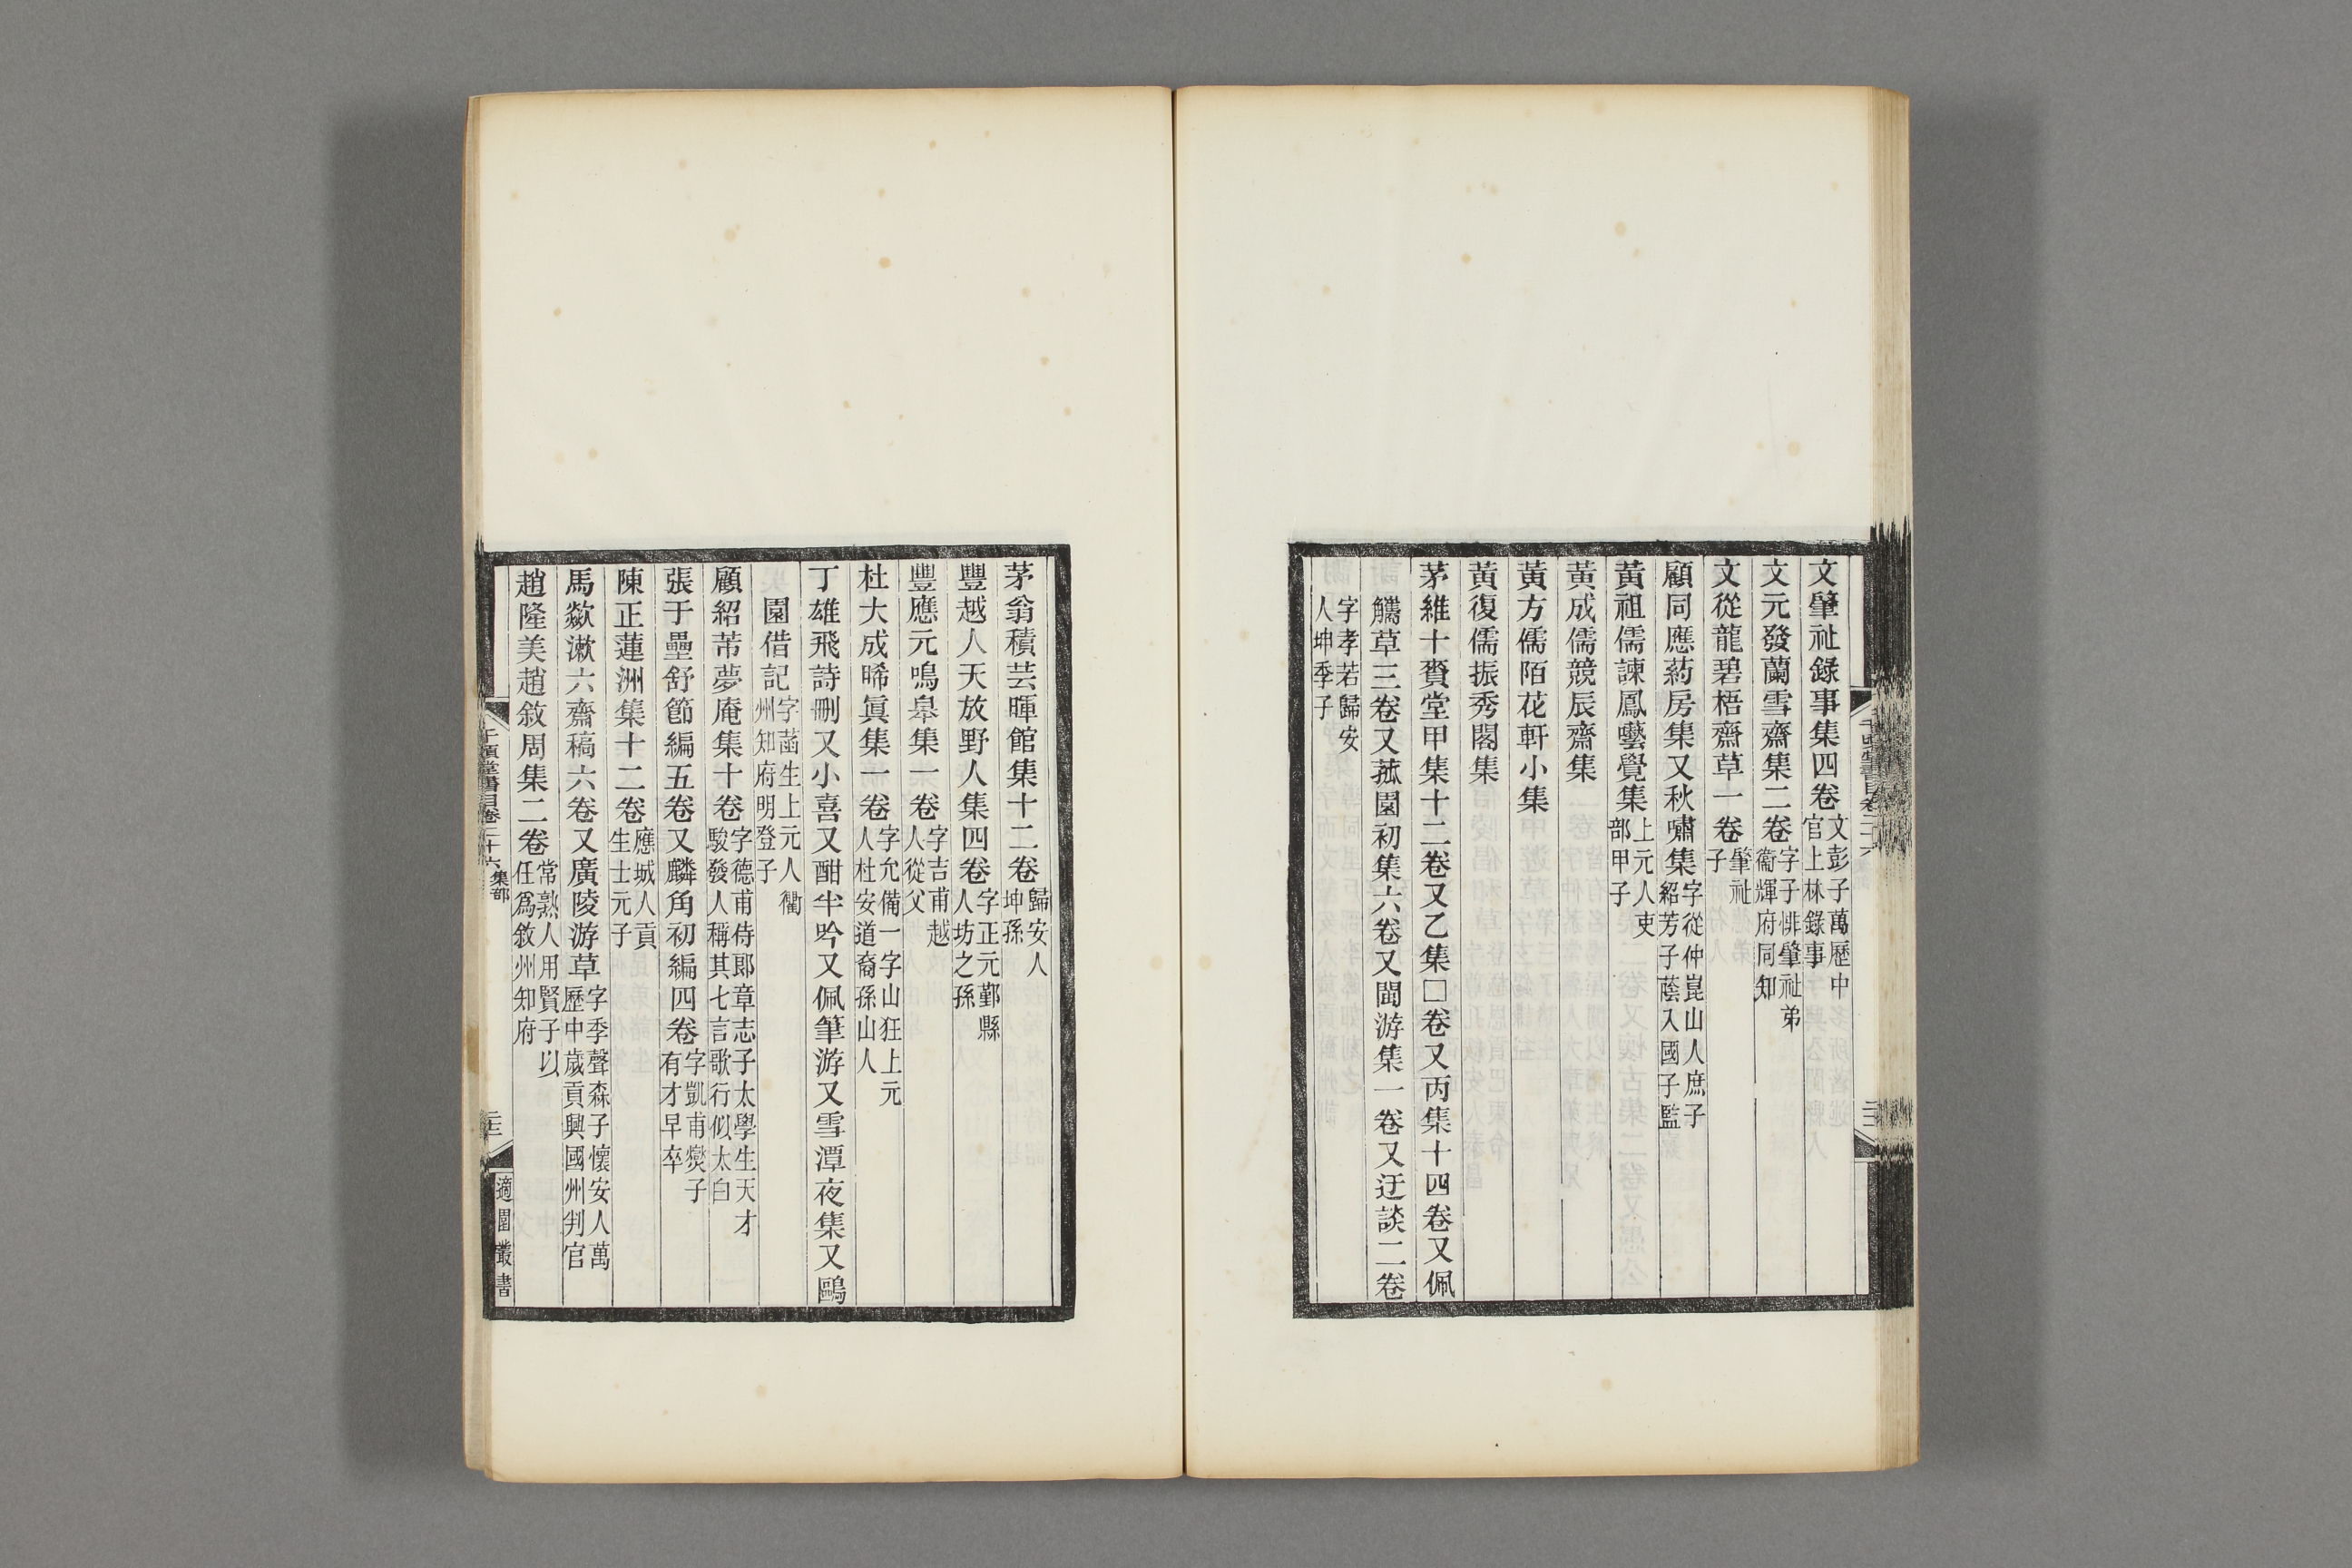 文肇祉錄事集四卷文彭子萬歷中官上林錄事
文元發蘭雪齋集二卷字子悱肇祉弟衞輝府同知
文從龍碧梧齋草一卷肇祉子
顧同應葯房集又秋嘯集字從仲崑山人庶子紹芳子蔭入國子監
黃祖儒諫鳳囈覺集上元人吏部甲子
黃成儒競辰齋集
黃方儒陌花軒小集
黃復儒振秀閣集
茅維十賚堂甲集十二卷又乙集□卷又丙集十四卷又佩
觿草三卷又菰園初集六卷又閩游集一卷又迂談二卷
字孝若歸安人坤季子
茅翁積芸暉館集十二卷歸安人坤孫
豐越人天放野人集四卷字正元鄞縣人坊之孫
豐應元鳴皋集一卷字吉甫越人從父
杜大成晞眞集一卷字允備一字山狂上元人杜安道裔孫山人
丁雄飛詩刪又小喜又酣半吟又佩筆游又雪潭夜集又鷗
園借記字菡生上元人衢州知府明登子
顧紹芾夢庵集十卷字德甫侍郎章志子太學生天才駿發人稱其七言歌行似太白
張于壘舒節編五卷又麟角初編四卷字凱甫燮子有才早卒
陳正蓮洲集十二卷應城人貢生士元子
馬歘漱六齋稿六卷又廣陵游草字季聲森子懷安人萬歷中歲貢興國州判官
趙隆美趙敘周集二卷常熟人用賢子以任爲敘州知府
千頃堂書目卷二十六集部
適園叢書